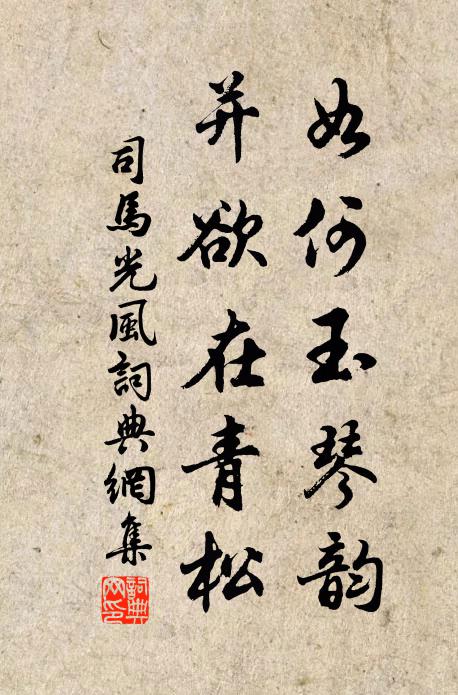 如何玉琴韵
并欲在青松
司馬光風詞典網集
詞典網印